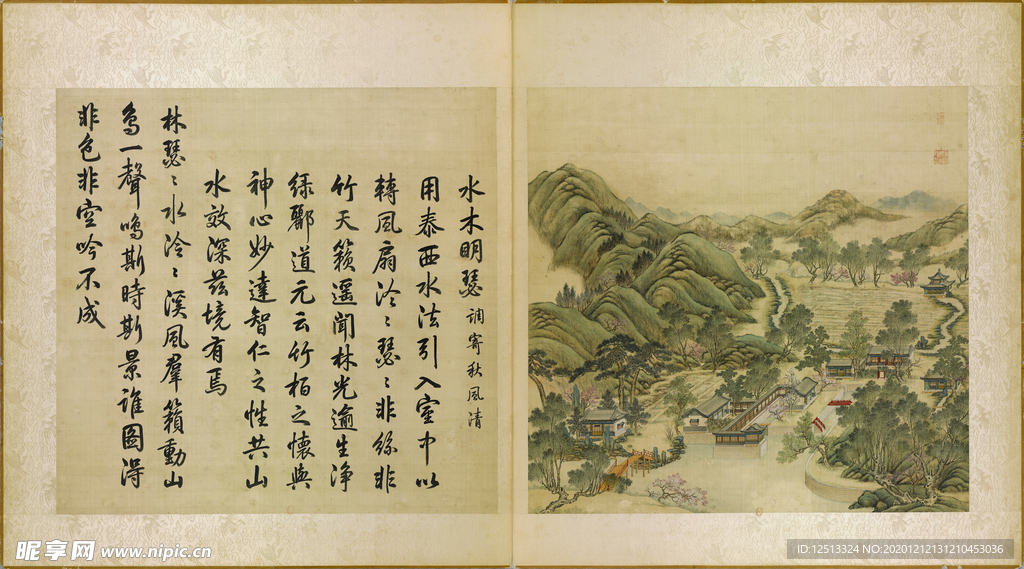 水木明瑟 调寄秋风清
用泰西水法引入室中以
轉風扇泠〻瑟〻非絲非
竹天籟遥聞林光逾生净
緑酈道元云竹柏之懷與
神心妙達智仁之性共山
水效深兹境有焉
林瑟〻水泠〻溪風羣籟動山
鳥一聲鳴斯時斯景誰圖得
非色非空吟不成
昵享网 www.nipic.cn
ID:12513324 NO:20201212131210453036